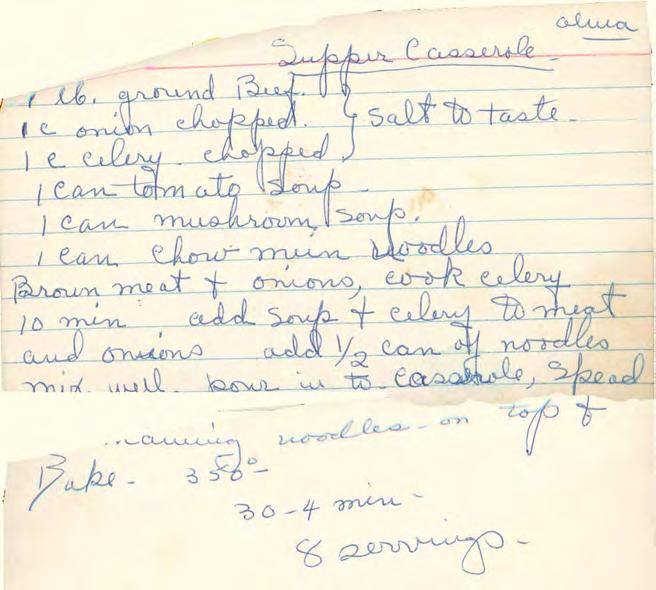 alma
Supper Casserole
1 lb. ground Beef.
1 c onion chopped. } salt to taste -
1 c celery chopped
1 can tomato soup -
1 can mushroom soup.
1 can chow mein noodles
Brown meat & onions, cook celery
10 min add soup & celery to meat
and onions add 1/2 can of noodles
mix well. pour in to casserole, Spead
noodles - on top &
Bake - 350° -
30-4 min -
8 servings -